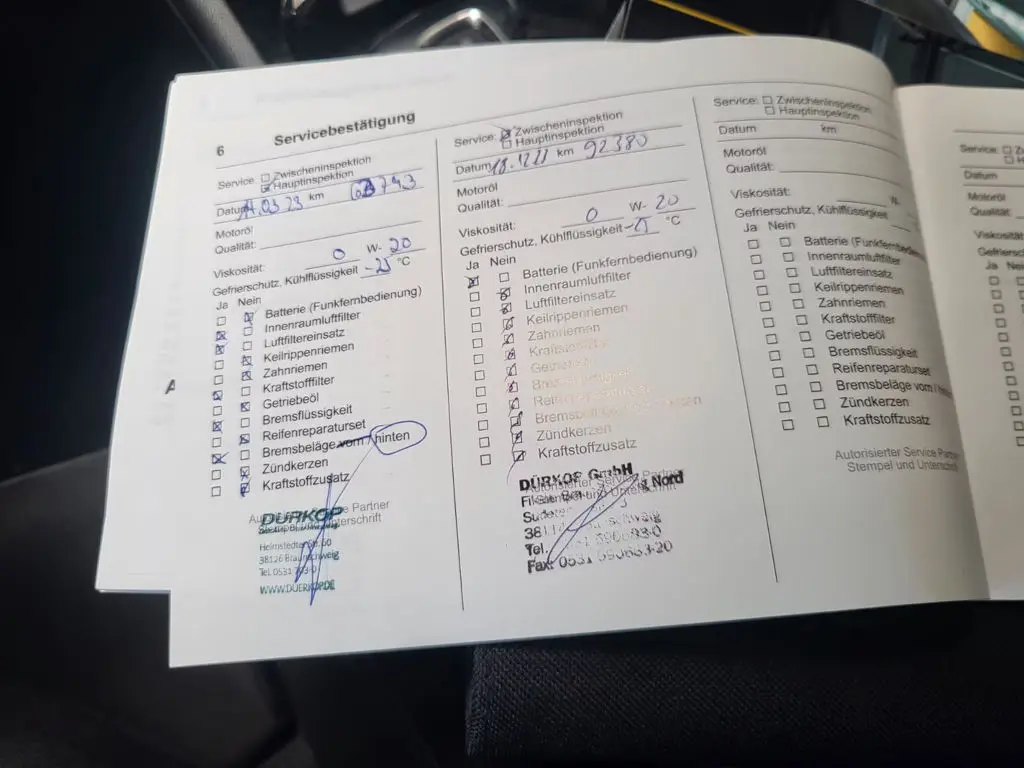 6 Servicebestätigung
Service: Zwischeninspektion
Hauptinspektion
Datum 03 23 km
Motoröl
Qualität:
Viskosität: 0 W- 20
Gefrierschutz, Kühlflüssigkeit -25 °C
Ja Nein
Batterie (Funkfernbedienung)
Innenraumluftfilter
Luftfiltereinsatz
Keilrippenriemen
Zahnriemen
Kraftstofffilter
Getriebeöl
Bremsflüssigkeit
Reifenreparaturset
Bremsbeläge vorn / hinten
Zündkerzen
Kraftstoffzusatz
Partner
Unterschrift
DÜRKOP
Helmstedter Str. 60
38126 Braunschweig
Tel. 0531
WWW.DUERKOP.DE
Service: Zwischeninspektion
Hauptinspektion
Datum km 92380
Motoröl
Qualität:
Viskosität: 0 W- 20
Gefrierschutz, Kühlflüssigkeit -25 °C
Ja Nein
Batterie (Funkfernbedienung)
Innenraumluftfilter
Luftfiltereinsatz
Keilrippenriemen
Zahnriemen
Kraftstofffilter
Getriebeöl
Bremsflüssigkeit
Reifenreparaturset
Bremsbeläge vorn / hinten
Zündkerzen
Kraftstoffzusatz
DÜRKOP GmbH
Nord
Tel.
Fax: 0531 590653-20
Service: Zwischeninspektion
Hauptinspektion
Datum km
Motoröl
Qualität:
Viskosität: W-
Gefrierschutz, Kühlflüssigkeit
Ja Nein
Batterie (Funkfernbedienung)
Innenraumluftfilter
Luftfiltereinsatz
Keilrippenriemen
Zahnriemen
Kraftstofffilter
Getriebeöl
Bremsflüssigkeit
Reifenreparaturset
Bremsbeläge vorn / hinten
Zündkerzen
Kraftstoffzusatz
Autorisierter Service Partner
Stempel und Unterschrift
Service:
Datum
Motoröl
Qualität:
Viskosität:
Gefrierschutz
Ja Nein